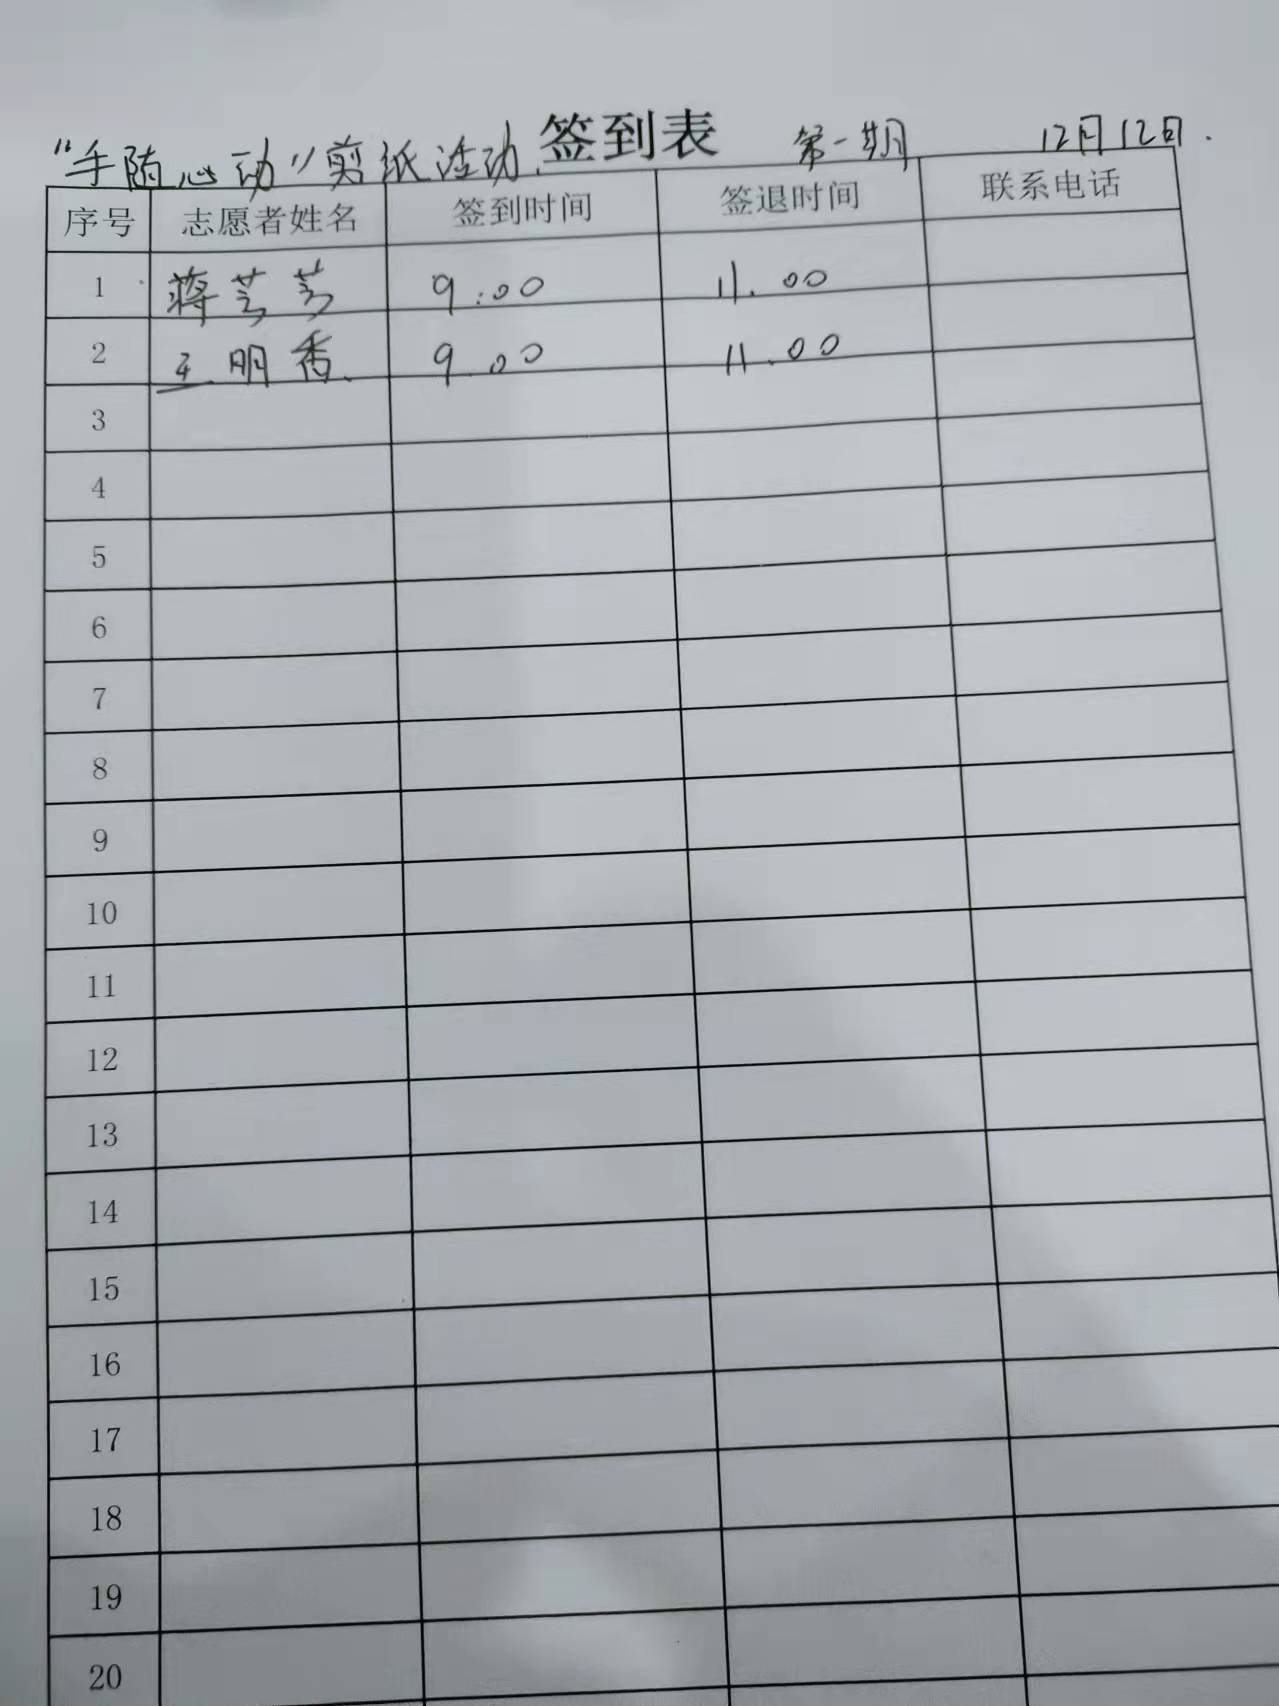 "手随心动"剪纸活动 签到表 第一期 12月12日.
序号 志愿者姓名 签到时间 签退时间 联系电话
1 蒋芸芸 9:00 11.00
2 王明香. 9.00 11.00
3
4
5
6
7
8
9
10
11
12
13
14
15
16
17
18
19
20